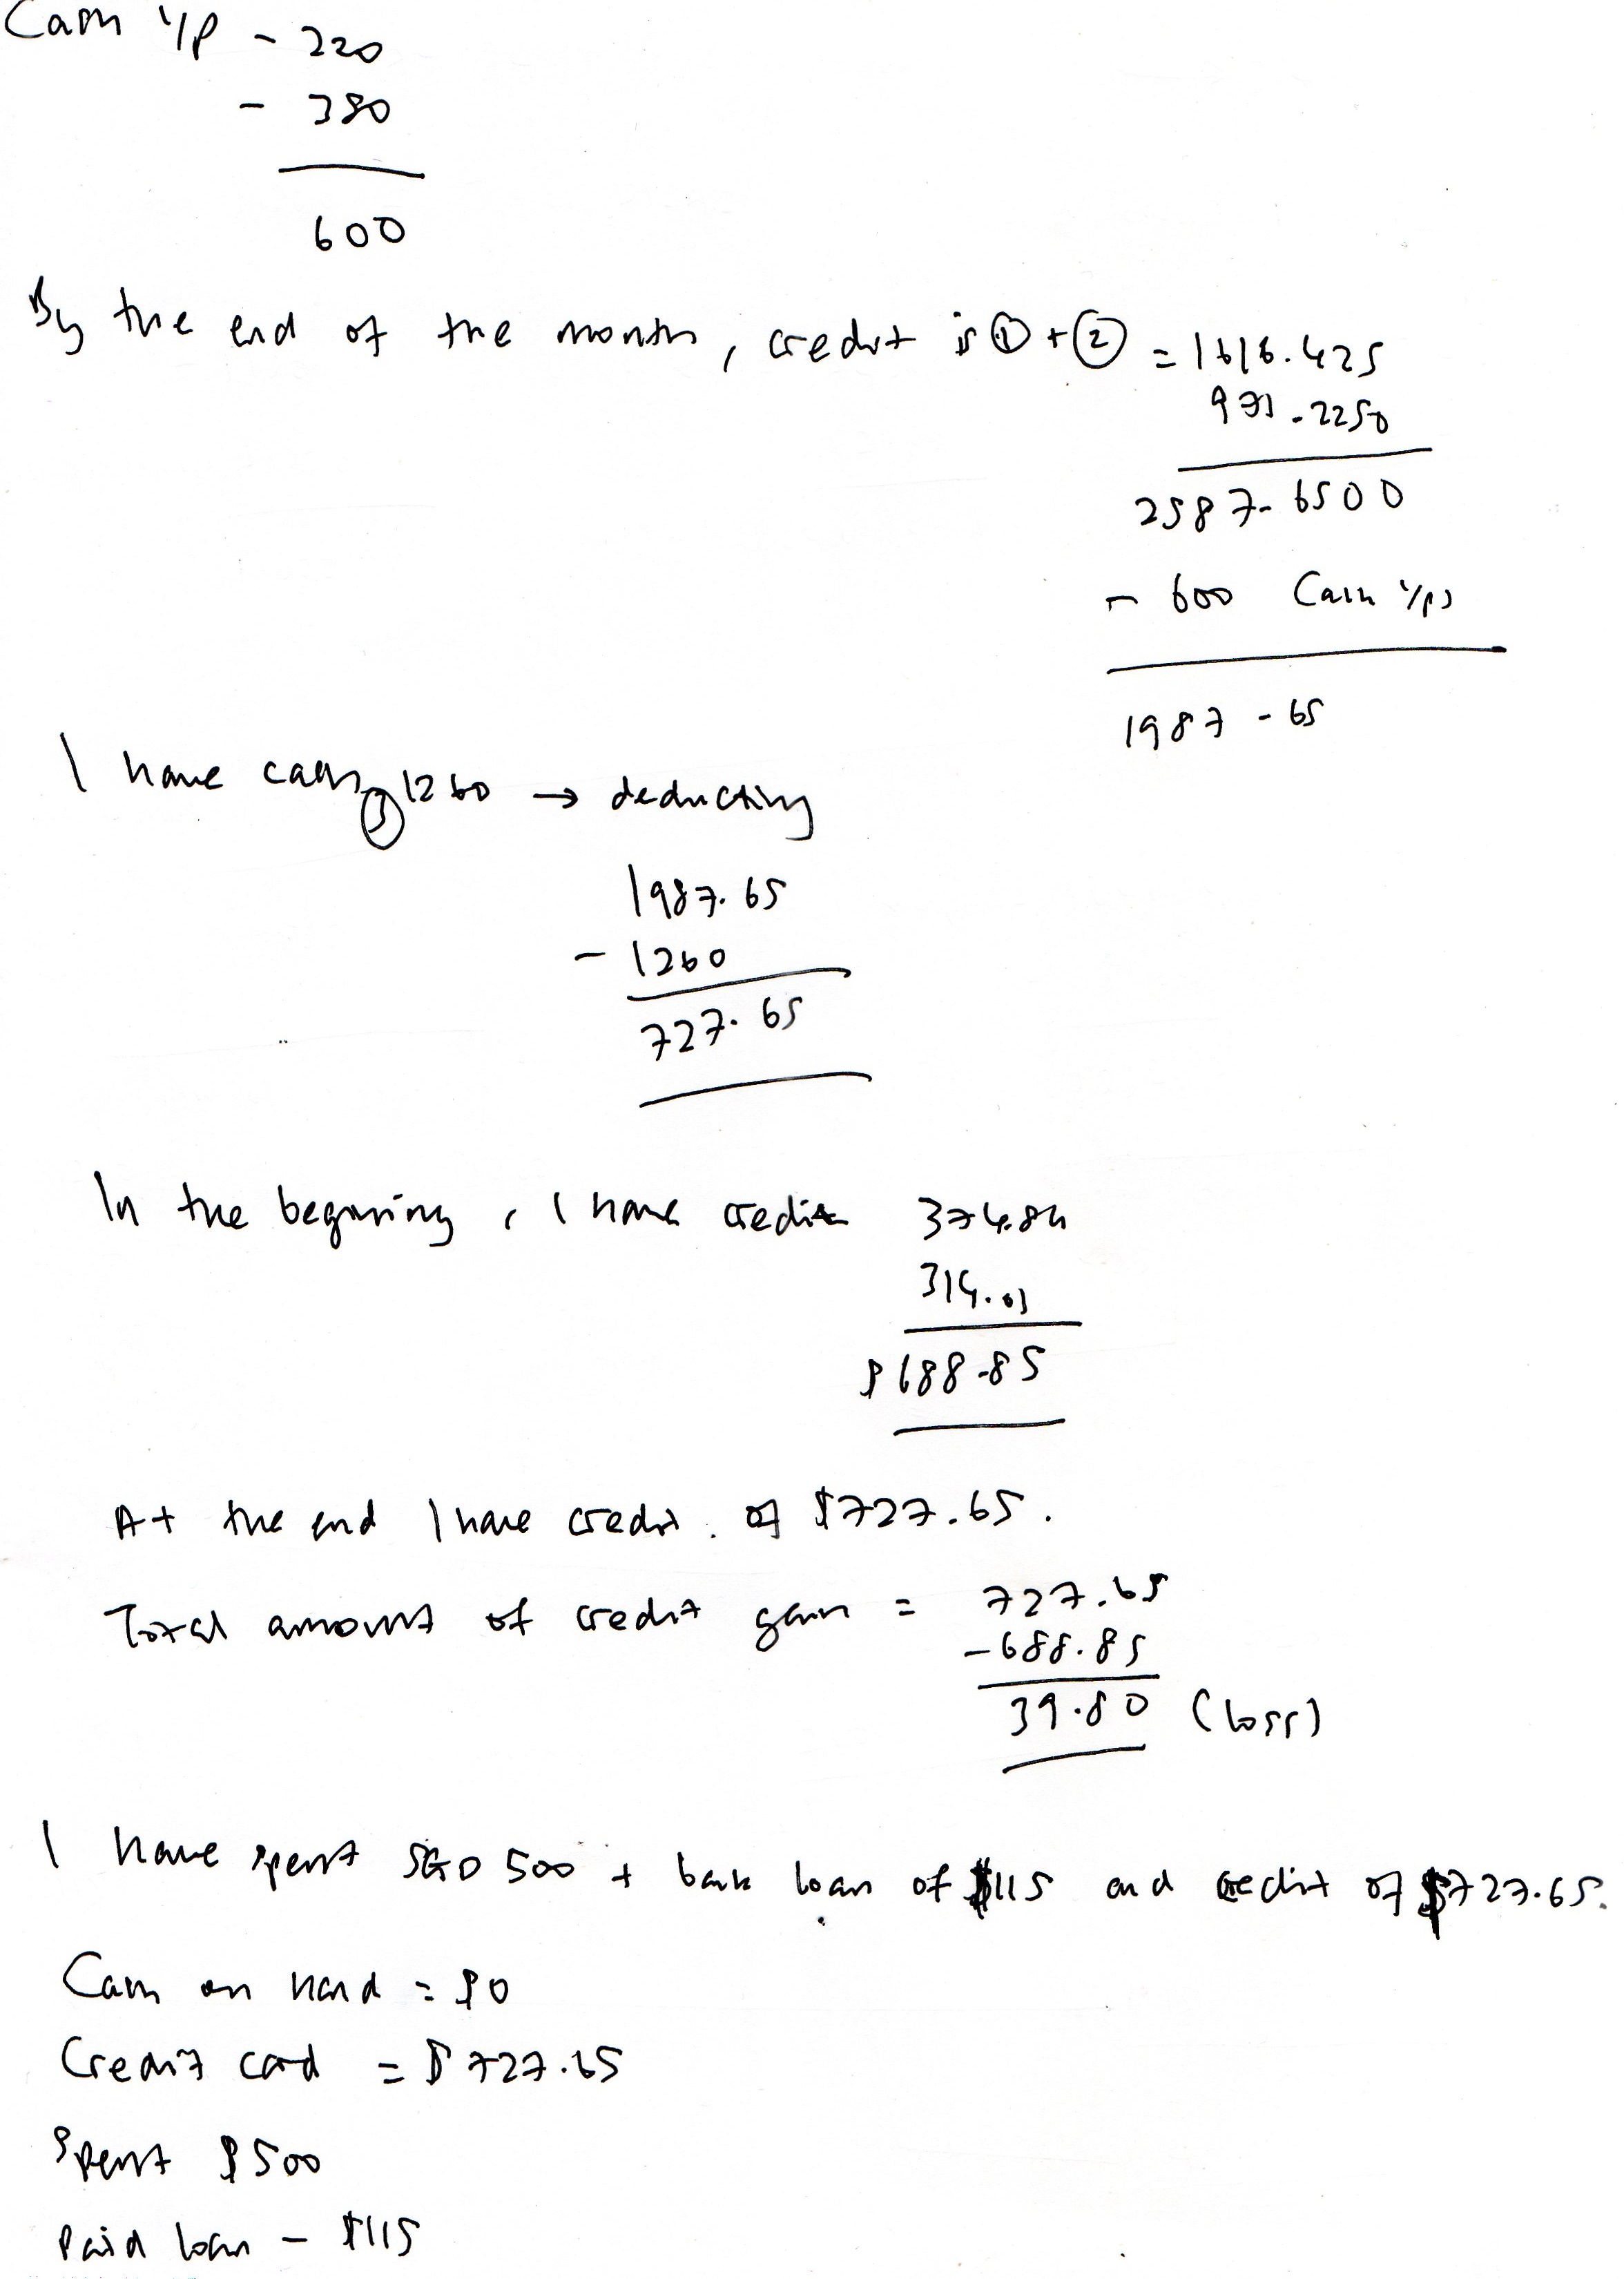 Cash i/p - 220
- 380
600
By the end of the month, credit is ① + ② = 1616.425
971.2250
2587.6500
- 600 Cash i/ps
1987.65
I have cash ③ 1260 → deducting
1987.65
- 1260
727.65
In the begnning, I have credit 374.84
314.01
$ 688.85
At the end I have credit of $727.65.
Total amount of credit gain = 727.65
- 688.85
39.80 (loss)
I have spent SGD 500 + bank loan of $115 and credit of $727.65.
Cash on hand = $0
Credit card = $727.65
Spent $500
Paid loan - $115